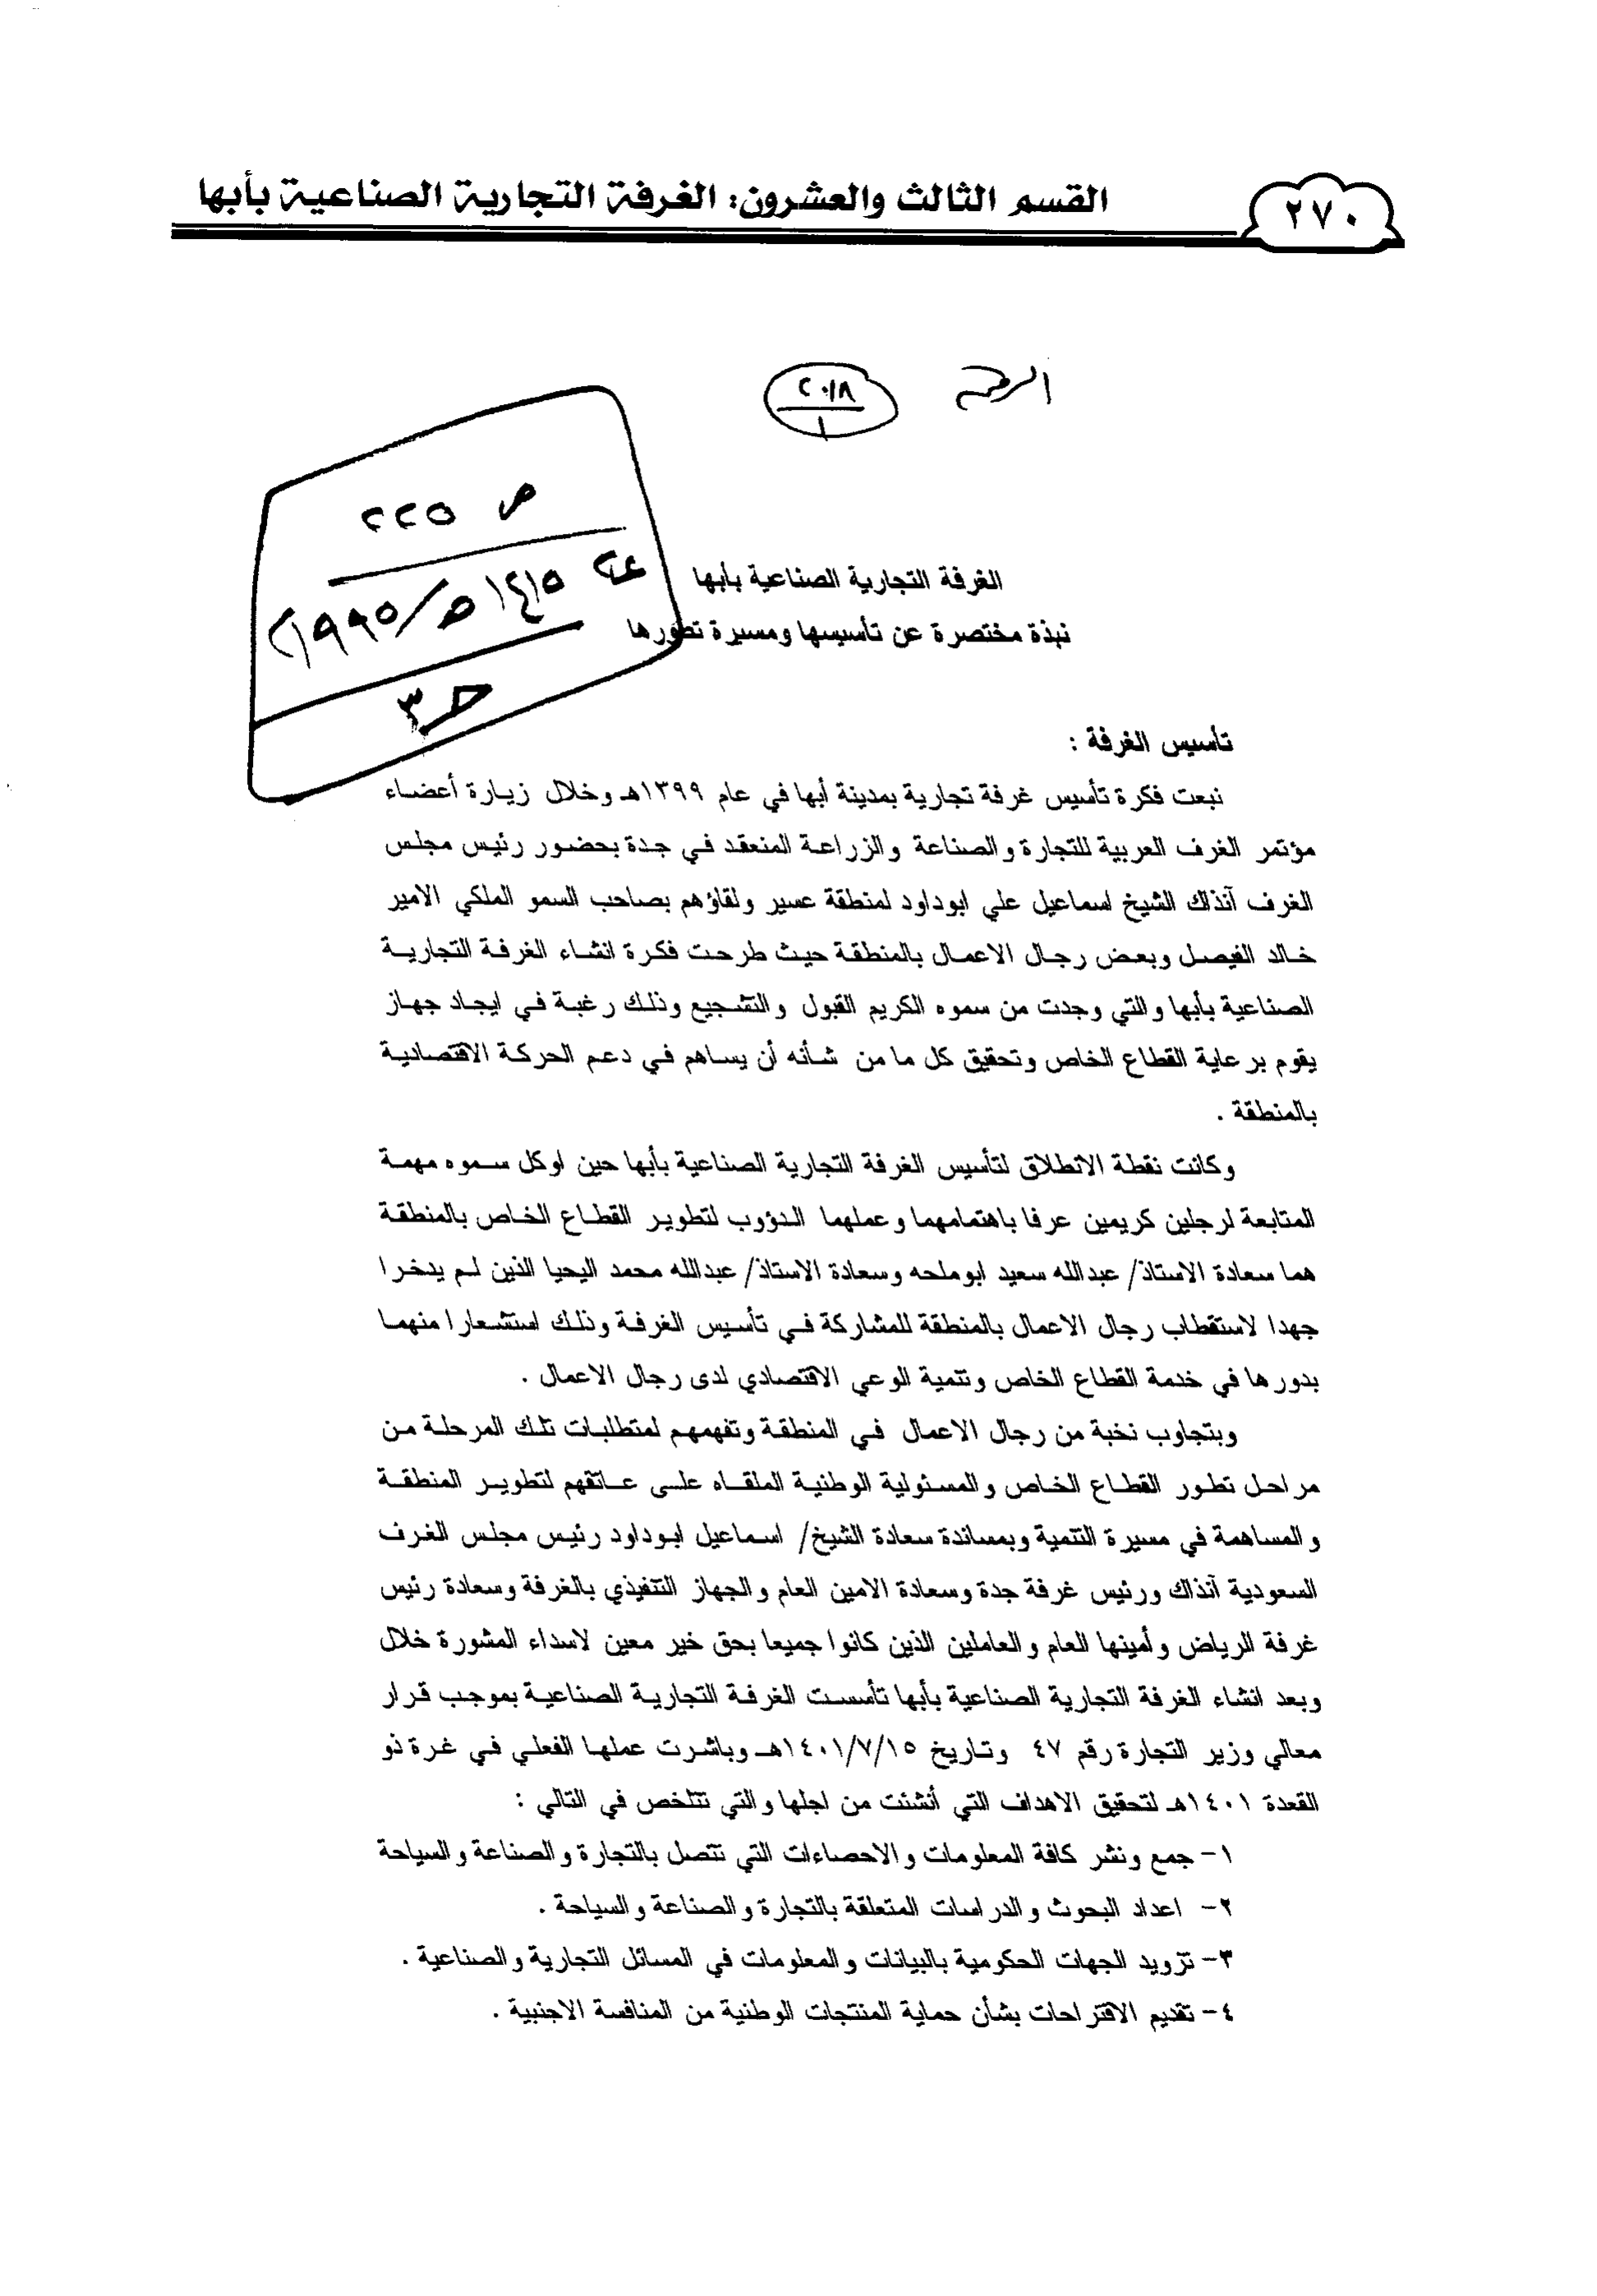 القسم الثالث والعشرون: الغرفة التجارية الصناعية بأبها
٢٧٠
٢٠١٨
١
ص ٢٢٥
١٤١٥هـ/١٩٩٥م
حـ٣
الغرفة التجارية الصناعية بأبها
نبذة مختصرة عن تأسيسها ومسيرة تطورها
تأسيس الغرفة :
نبعت فكرة تأسيس غرفة تجارية بمدينة أبها في عام ١٣٩٩هـ وخلال زيارة أعضاء
مؤتمر الغرف العربية للتجارة والصناعة والزراعة المنعقد في جدة بحضور رئيس مجلس
الغرف آنذاك الشيخ اسماعيل علي ابوداود لمنطقة عسير ولقاؤهم بصاحب السمو الملكي الامير
خالد الفيصل وبعض رجال الاعمال بالمنطقة حيث طرحت فكرة انشاء الغرفة التجارية
الصناعية بأبها والتي وجدت من سموه الكريم القبول والتشجيع وذلك رغبة في ايجاد جهاز
يقوم برعاية القطاع الخاص وتحقيق كل ما من شأنه أن يساهم في دعم الحركة الاقتصادية
بالمنطقة .
وكانت نقطة الانطلاق لتأسيس الغرفة التجارية الصناعية بأبها حين اوكل سموه مهمة
المتابعة لرجلين كريمين عرفا باهتمامهما وعملهما الدؤوب لتطوير القطاع الخاص بالمنطقة
هما سعادة الاستاذ/ عبدالله سعيد ابوملحه وسعادة الاستاذ/ عبدالله محمد اليحيا الذين لم يدخرا
جهدا لاستقطاب رجال الاعمال بالمنطقة للمشاركة في تأسيس الغرفة وذلك استشعارا منهما
بدورها في خدمة القطاع الخاص وتنمية الوعي الاقتصادي لدى رجال الاعمال .
وبتجاوب نخبة من رجال الاعمال في المنطقة وتفهمهم لمتطلبات تلك المرحلة من
مراحل تطور القطاع الخاص والمسئولية الوطنية الملقاه على عاتقهم لتطوير المنطقة
والمساهمة في مسيرة التنمية وبمساندة سعادة الشيخ/ اسماعيل ابوداود رئيس مجلس الغرف
السعودية آنذاك ورئيس غرفة جدة وسعادة الامين العام والجهاز التنفيذي بالغرفة وسعادة رئيس
غرفة الرياض وأمينها العام والعاملين الذين كانوا جميعا بحق خير معين لاسداء المشورة خلال
وبعد انشاء الغرفة التجارية الصناعية بأبها تأسست الغرفة التجارية الصناعية بموجب قرار
معالي وزير التجارة رقم ٤٧ وتاريخ ١٤٠١/٧/١٥هـ وباشرت عملها الفعلي في غرة ذو
القعدة ١٤٠١هـ لتحقيق الاهداف التي أنشئت من اجلها والتي تتلخص في التالي :
١- جمع ونشر كافة المعلومات والاحصاءات التي تتصل بالتجارة والصناعة والسياحة
٢- اعداد البحوث والدراسات المتعلقة بالتجارة والصناعة والسياحة .
٣- تزويد الجهات الحكومية بالبيانات والمعلومات في المسائل التجارية والصناعية .
٤- تقديم الاقتراحات بشأن حماية المنتجات الوطنية من المنافسة الاجنبية .